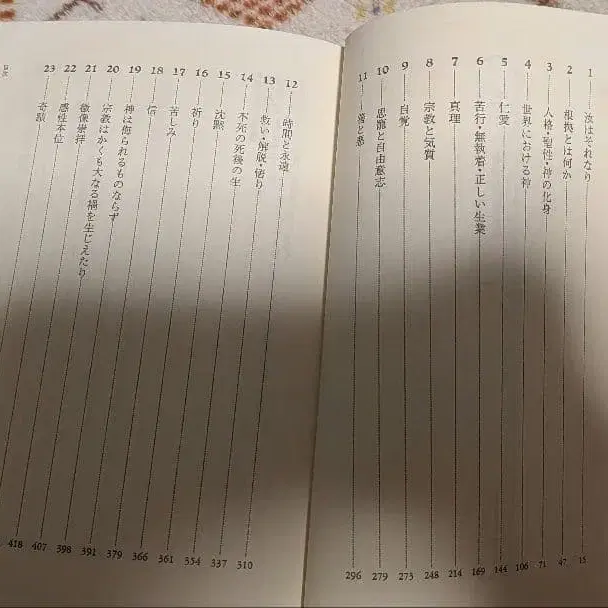 1 汝はそれなり 15
2 根拠とは何か 47
3 人格・聖性・神の化身 71
4 世界における神 106
5 仁愛 144
6 苦行・無執着・正しい生業 169
7 真理 214
8 宗教と気質 248
9 自覚 273
10 恩寵と自由意志 279
11 善と悪 296
12 時間と永遠 310
13 救い・解脱・悟り 337
14 不死と死後の生 354
15 沈黙 361
16 祈り 366
17 苦しみ 379
18 信 391
19 神は侮られるものならず 398
20 宗教はかくも大なる禍を生じえたり 407
21 偶像崇拝 418
22 感性本位
23 奇蹟
目次